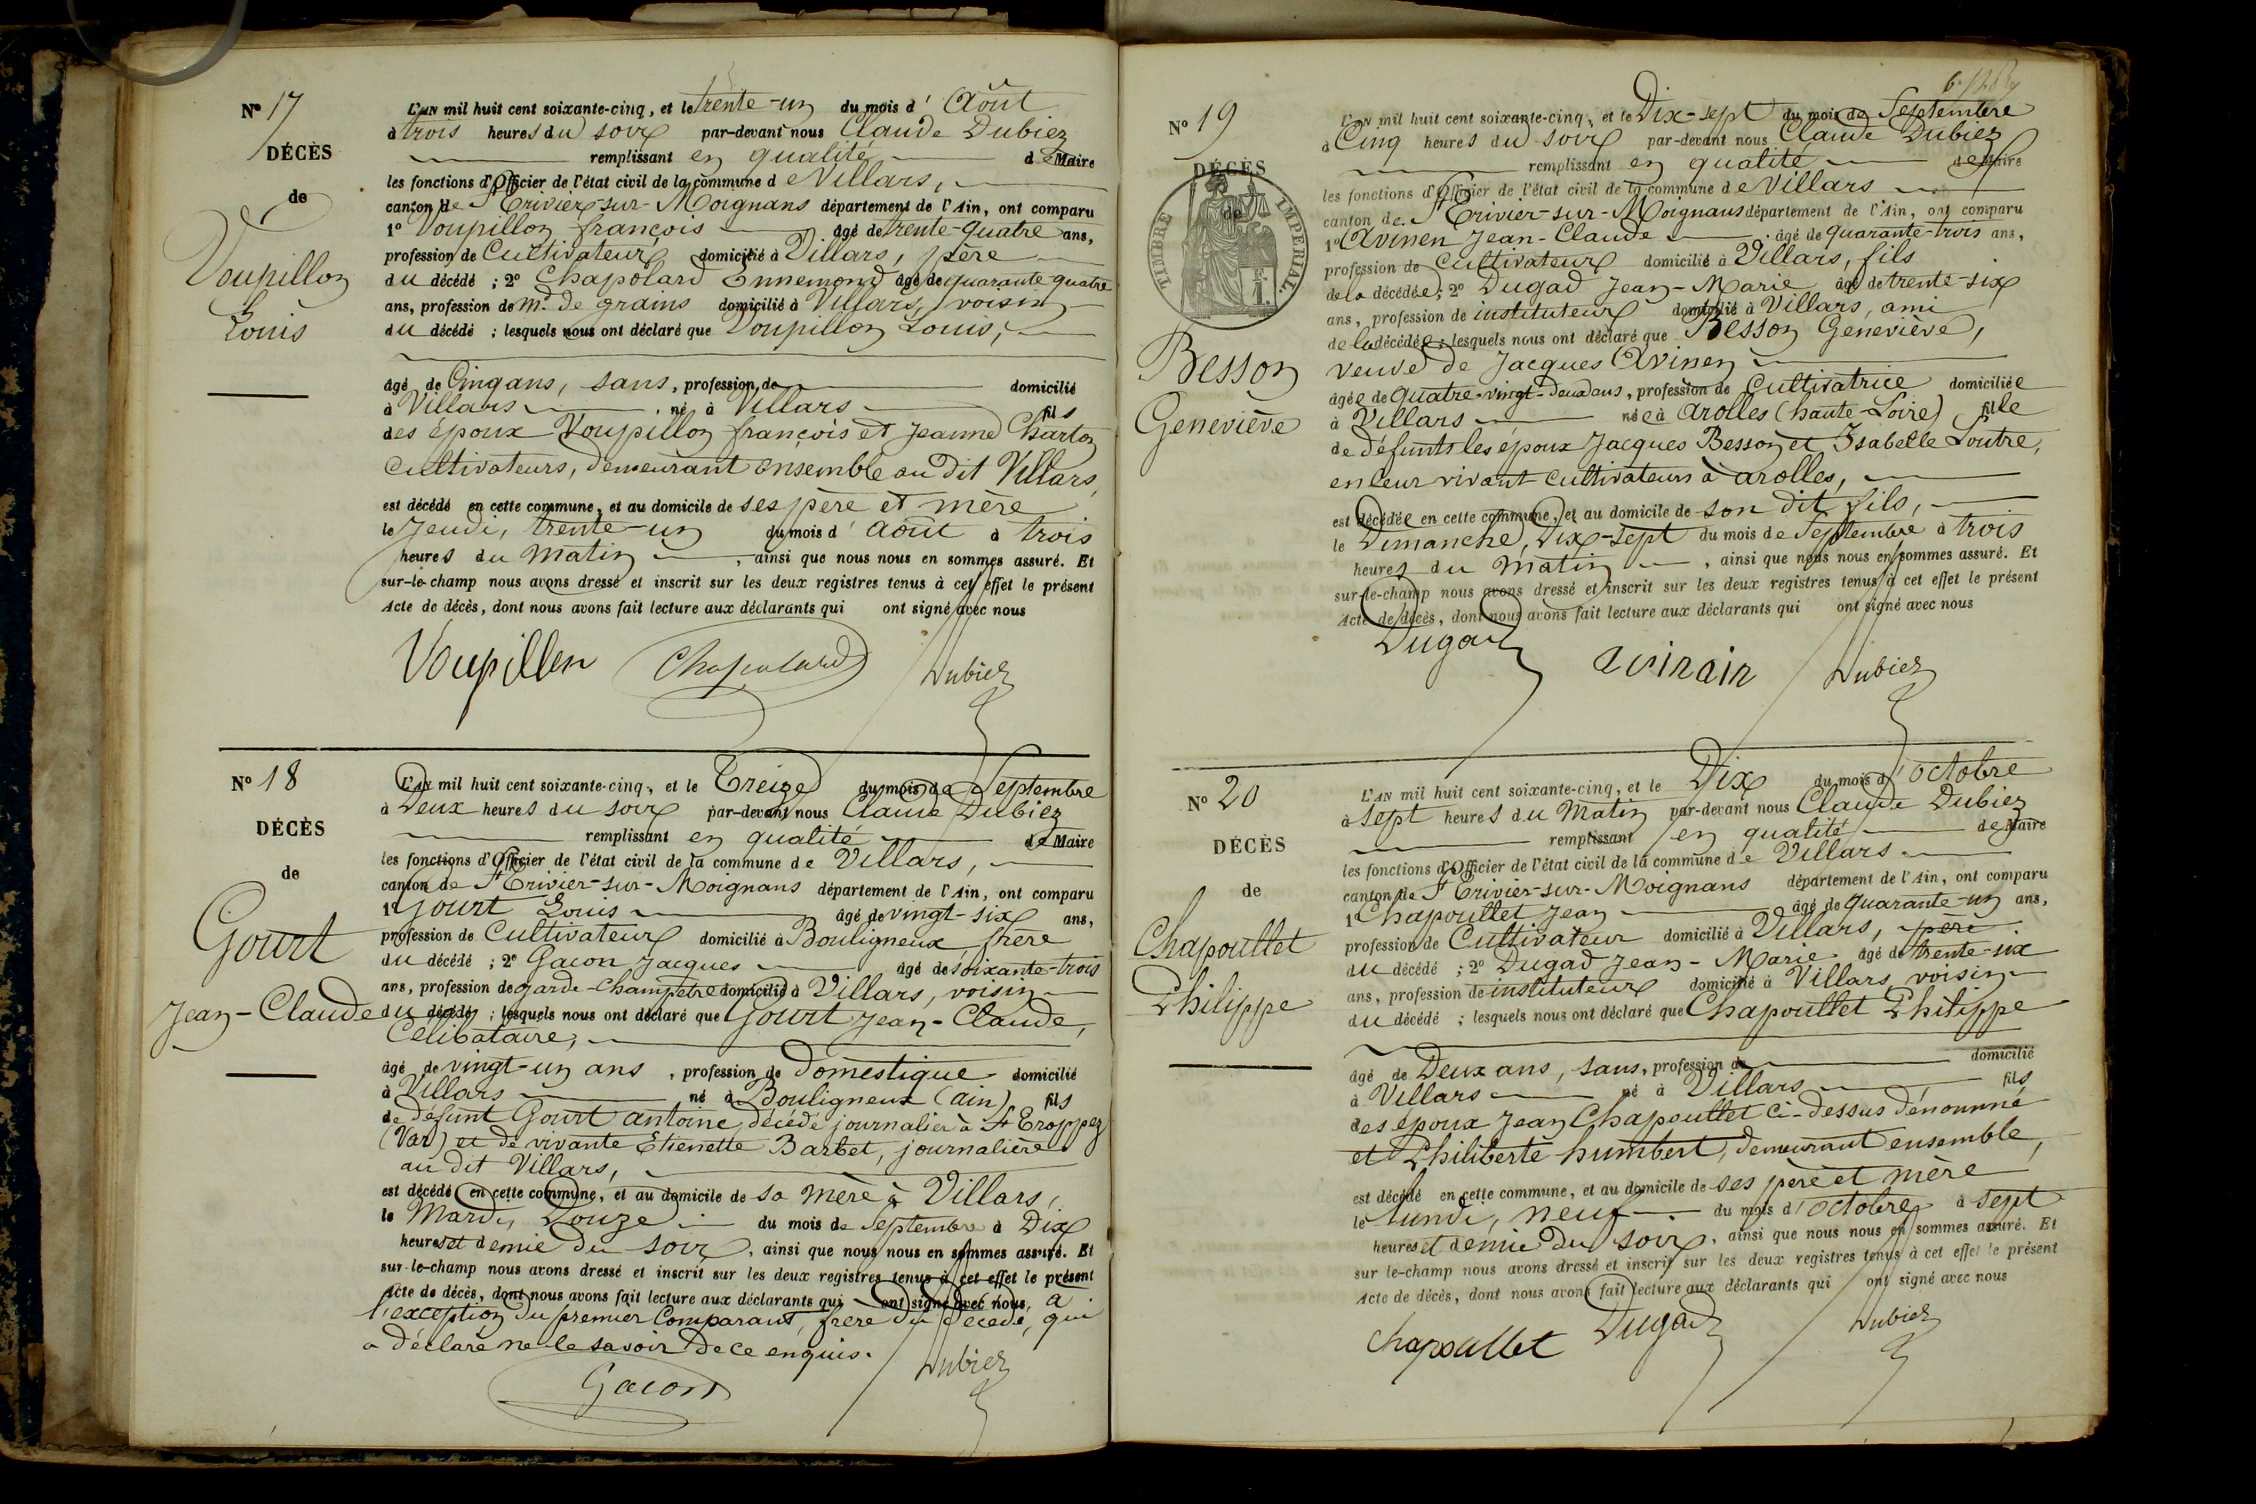 Nº 17
DÉCÈS
de
Voupillon
Louis
L'AN mil huit cent soixante-cinq, et le trente-un du mois d' Août
à trois heures du soir par-devant nous Claude Dubiez
remplissant en qualité de Maire
les fonctions d'Officier de l'état civil de la commune de Villars,
canton de St Trivier-sur-Moignans département de l'Ain, ont comparu
1º Voupillon françois âgé de trente-quatre ans,
profession de Cultivateur domicilié à Villars, père
du décédé ; 2º Chapolard Ennemond âgé de quarante-quatre
ans, profession de md de grains domicilié à Villars, voisin
du décédé ; lesquels nous ont déclaré que Voupillon Louis,
âgé de Cinq ans, sans, profession de domicilié
à Villars né à Villars fils
des époux Voupillon françois et Jeanne Charton
Cultivateurs, demeurant ensemble au dit Villars,
est décédé en cette commune, et au domicile de ses père et mère
le Jeudi, trente-un du mois d' août à trois
heures du matin, ainsi que nous nous en sommes assuré. Et
sur-le-champ nous avons dressé et inscrit sur les deux registres tenus à cet effet le présent
Acte de décès, dont nous avons fait lecture aux déclarants qui ont signé avec nous
Voupillon Chapolard Dubiez
Nº 18
DÉCÈS
de
Gourt
Jean-Claude
L'AN mil huit cent soixante-cinq, et le Treize du mois de Septembre
à Deux heures du soir par-devant nous Claude Dubiez
remplissant en qualité de Maire
les fonctions d'Officier de l'état civil de la commune de Villars,
canton de St Trivier-sur-Moignans département de l'Ain, ont comparu
1º Gourt Louis âgé de vingt-six ans,
profession de Cultivateur domicilié à Bouligneux frère
du décédé ; 2º Gacon Jacques âgé de soixante-trois
ans, profession de garde-Champêtre domicilié à Villars, voisin
du décédé ; lesquels nous ont déclaré que Gourt Jean-Claude,
Célibataire,
âgé de vingt-un ans, profession de Domestique domicilié
à Villars né à Bouligneux (ain) fils
de défunt Gourt antoine, décédé journalier à St Troppez
(Var) et de vivante Etienette Barbet, journalière
au dit Villars,
est décédé en cette commune, et au domicile de sa mère à Villars,
le Mardi, Douze du mois de Septembre à Dix
heures et demie du soir, ainsi que nous nous en sommes assuré. Et
sur-le-champ nous avons dressé et inscrit sur les deux registres tenus à cet effet le présent
Acte de décès, dont nous avons fait lecture aux déclarants qui ont signé avec nous, à
l'exception du premier Comparant, frère du décédé, qui
a déclaré ne le savoir de ce enquis.
Gacon Dubiez
Nº 19
DÉCÈS
de
TIMBRE IMPÉRIAL
Besson
Geneviève
L'AN mil huit cent soixante-cinq, et le Dix-sept du mois de Septembre
à Cinq heures du soir par-devant nous Claude Dubiez
remplissant en qualité de Maire
les fonctions d'Officier de l'état civil de la commune de Villars
canton de St Trivier-sur-Moignans département de l'Ain, ont comparu
1º Avinen Jean-Claude âgé de quarante-trois ans,
profession de Cultivateur domicilié à Villars, fils
de la décédée ; 2º Dugad Jean-Marie âgé de trente-six
ans, profession de instituteur domicilié à Villars, ami
de la décédée ; lesquels nous ont déclaré que Besson Geneviève,
veuve de Jacques Avinen
âgée de quatre-vingt-deux ans, profession de Cultivatrice domiciliée
à Villars née à arolles (haute-Loire) fille
de défunts les époux Jacques Besson et Isabelle Loutre,
en leur vivant Cultivateurs à arolles,
est décédée en cette commune, et au domicile de son dit fils,
le Dimanche, Dix-sept du mois de Septembre à trois
heures du Matin, ainsi que nous nous en sommes assuré. Et
sur-le-champ nous avons dressé et inscrit sur les deux registres tenus à cet effet le présent
Acte de décès, dont nous avons fait lecture aux déclarants qui ont signé avec nous
Dugad avinain Dubiez
Nº 20
DÉCÈS
de
Chapoullet
Philippe
L'AN mil huit cent soixante-cinq, et le Dix du mois d' octobre
à sept heures du Matin par-devant nous Claude Dubiez
remplissant en qualité de Maire
les fonctions d'Officier de l'état civil de la commune de Villars
canton de St Trivier-sur-Moignans département de l'Ain, ont comparu
1º Chapoullet Jean âgé de quarante-un ans,
profession de Cultivateur domicilié à Villars, père
du décédé ; 2º Dugad Jean-Marie âgé de trente-six
ans, profession de instituteur domicilié à Villars, voisin
du décédé ; lesquels nous ont déclaré que Chapoullet Philippe
âgé de Deux ans, sans, profession de domicilié
à Villars né à Villars fils
des époux Jean Chapoullet Ci-dessus dénommé
et Philiberte humbert, demeurant ensemble,
est décédé en cette commune, et au domicile de ses père et mère
le lundi, neuf du mois d' octobre à sept
heures et demie du soir, ainsi que nous nous en sommes assuré. Et
sur le-champ nous avons dressé et inscrit sur les deux registres tenus à cet effet le présent
Acte de décès, dont nous avons fait lecture aux déclarants qui ont signé avec nous
Chapoullet Dugad Dubiez